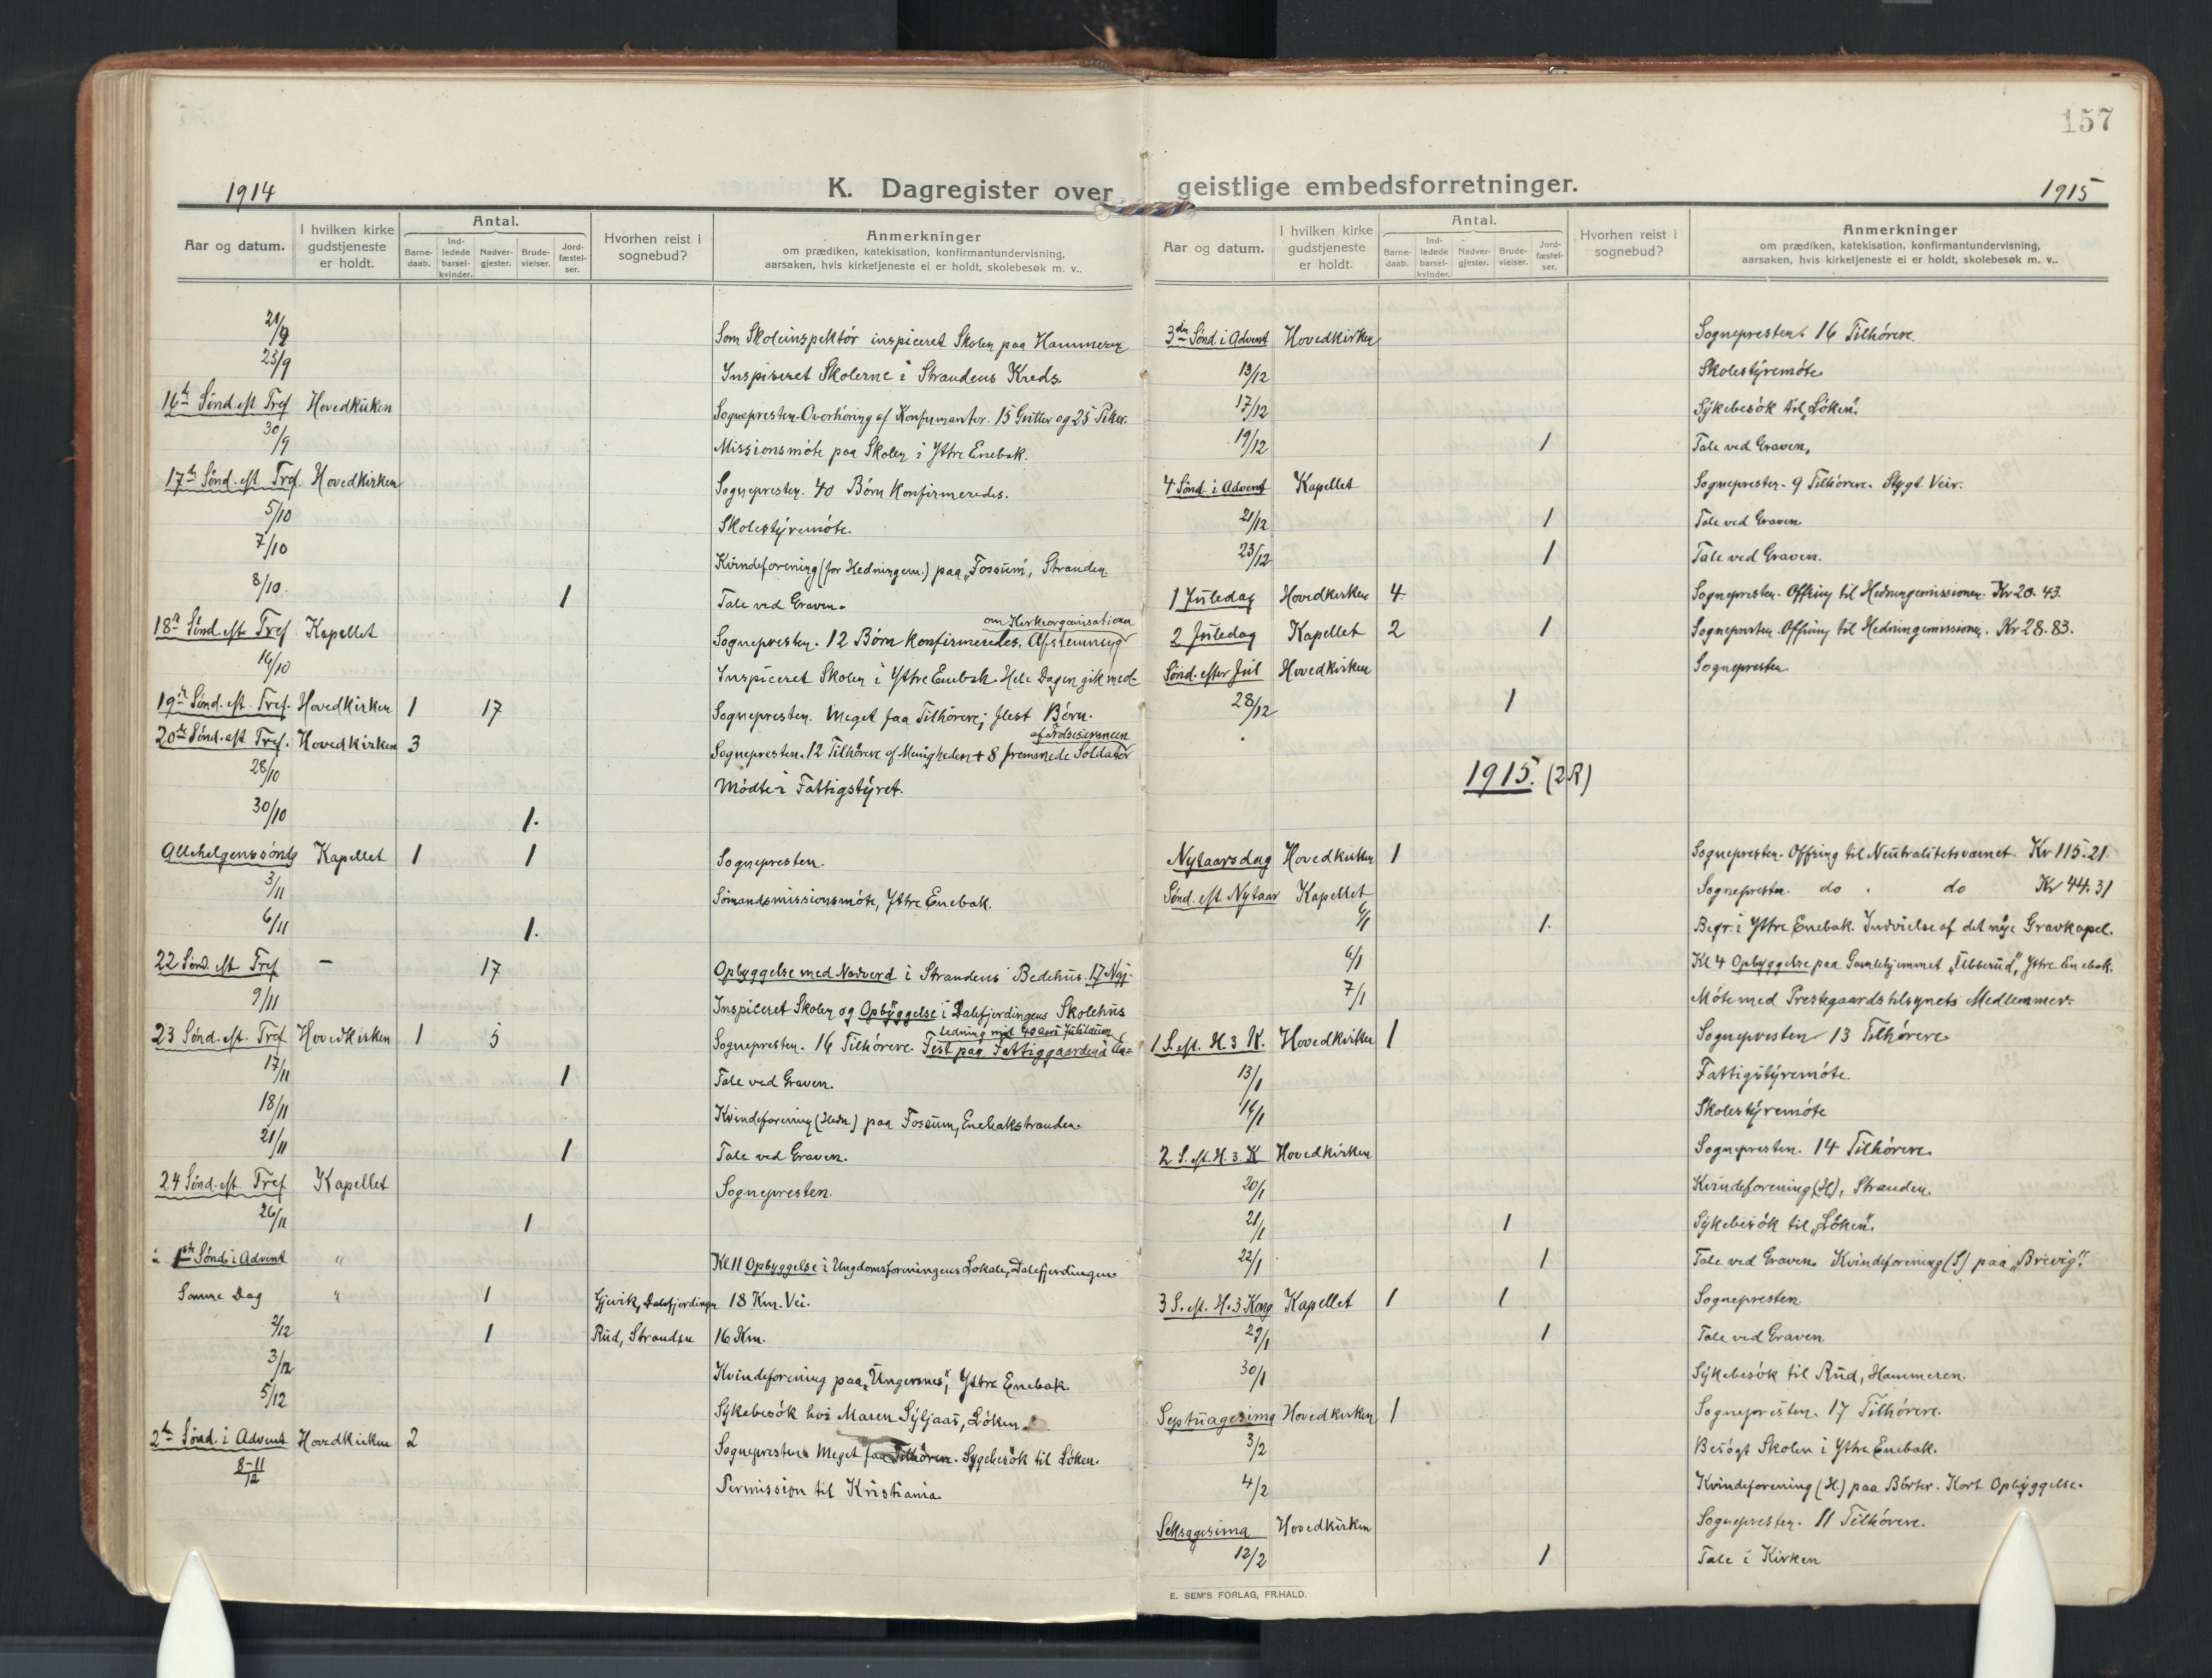 157
1914
K. Dagregister over geistlige embedsforretninger.
1915
Aar og datum. I hvilken kirke gudstjeneste er holdt. Antal. Barne-daab. Ind-ledede barsel-kvinder. Nadver-gjester. Brude-vielser. Jord-fæstel-ser. Hvorhen reist i sognebud? Anmerkninger om prædiken, katekisation, konfirmantundervisning, aarsaken, hvis kirketjeneste ei er holdt, skolebesøk m. v..
21/9 Som Skoleinspektör inspiceret Skolen paa Hammeren
23/9 Inspiseret Skolerne i Strandens Kreds
16de Sönd. eft. Tref Hovedkirken Sognepresten. Overhöring af Konfirmanter. 15 Gutter og 25 Piker.
30/9 Missionsmöte paa Skolen i Ytre Enebak.
17de Sönd. eft. Tref. Hovedkirken Sognepresten. 40 Börn konfirmeredes.
5/10 Skolestyremöte.
7/10 Kvindeforening (for Hedningem.) paa „Fossum", Stranden
8/10. 1 Tale ved Graven.
18de Sönd. eft. Tref Kapellet Sognepresten. 12 Börn konfirmeredes. Afstemning om Kirkeorganisationen
14/10 Inspiceret Skolen i Ytre Enebak. Hele Dagen gik med
19de Sönd. eft. Tref. Hovedkirken 1 17 Sognepresten. Meget faa Tilhörere; flest Börn.
20de Sönd. eft Tref. Hovedkirken 3 Sognepresten. 12 Tilhörere af Menigheden + 8 fremmede Soldater
28/10 Mödte i Fattigstyret.
30/10 1.
Allehelgenssönd Kapellet 1 1 Sognepresten.
3/11 Sömandsmissionsmöte, Ytre Enebak.
6/11 1.
22 Sönd. eft Tref – 17 Opbyggelse med Nadverd i Strandens Bedehus. 17 Ngj.
9/11 Inspiceret Skolen og Opbyggelse i Dalefjerdingens Skolehus
23 Sönd. eft. Tref Hovedkirken 1 5 Sognepresten. 16 Tilhörere. Fest paa Fattiggaarden i An-ledning mit 40 aars Jubilæum
17/11 1 Tale ved Graven.
18/11 Kvindeforening (Hedn.) paa Fossum, Enebakstranden.
21/11 1 Tale ved Graven.
24 Sönd. eft. Tref Kapellet Sognepresten.
26/11 1
1ste Sönd. i Advent " Kl 11 Opbyggelse i Ungdomsforeningens Lokale, Dalefjerdingen
Samme Dag " 1 Gjevik, Dalefjerdingen 18 Km. Vei.
2/12 1 Rud, Stranden 16 Km.
3/12 Kvindeforening paa „Ungersnes", Ytre Enebak.
5/12 Sykebesök hos Maren Syljaas, Löken.
2de Sönd. i Advent Hovedkirken 2 Sognepresten. Meget faa Tilhörere. Sygebesök til Löken.
8-11/12 Permission til Kristiania.
Aar og datum. I hvilken kirke gudstjeneste er holdt. Antal. Barne-daab. Ind-ledede barsel-kvinder. Nadver-gjester. Brude-vielser. Jord-fæstel-ser. Hvorhen reist i sognebud? Anmerkninger om prædiken, katekisation, konfirmantundervisning, aarsaken, hvis kirketjeneste ei er holdt, skolebesøk m. v..
3die Sönd. i Advent Hovedkirken Sognepresten. 16 Tilhörere.
13/12 Skolestyremöte
17/12 Sykebesök til „Löken".
19/12 1 Tale ved Graven.
4 Sönd. i Advent Kapellet Sognepresten. 9 Tilhörere. Stygt Veir.
21/12 1 Tale ved Graven.
23/12 1 Tale ved Graven.
1 Juledag Hovedkirken 4 Sognepresten. Offring til Hedningemissionen. Kr 20.43.
2 Juledag Kapellet 2 1 Sognepresten. Offring til Hedningemissionen. Kr 28.83.
Sönd. efter Jul Hovedkirken Sognepresten
28/12 1
1915. (2R)
Nytaarsdag Hovedkirken 1 Sognepresten. Offring til Neutralitetsvernet. Kr 115.21
Sönd. eft Nytaar Kapellet Sognepresten do do Kr 44.31
6/1 1. Begr. i Ytre Enebak. Indvielse af det nye Gravkapel.
6/1 Kl 4 Opbyggelse paa Gamlehjemmet „Ubberud", Ytre Enebak.
7/1 Möte med Prestegaardstilsynets Medlemmer.
1 S. eft. H. 3 K. Hovedkirken 1 Sognepresten 13 Tilhörere
13/1 Fattigstyremöte.
14/1 Skolestyremöte
2 S. eft. H. 3. K Hovedkirken Sognepresten. 14 Tilhörere.
20/1 Kvindeforening (H), Stranden.
21/1 1 Sykebesök til „Löken".
22/1 1 Tale ved Graven. Kvindeforening (S) paa „Brevig".
3 S. eft. H. 3 Kong Kapellet 1 1 Sognepresten
29/1 1 Tale ved Graven.
30/1 Sykebesök til Rud, Hammeren.
Septuagesima Hovedkirken 1 Sognepresten. 17 Tilhörere.
3/2 Besögt Skolen i Ytre Enebak.
4/2 Kvindeforening (H.) paa Börter. Kort Opbyggelse.
Seksagesima Hovedkirken Sognepresten. 11 Tilhörere.
12/2 1 Tale i Kirken
E. SEM'S FORLAG, FR.HALD.